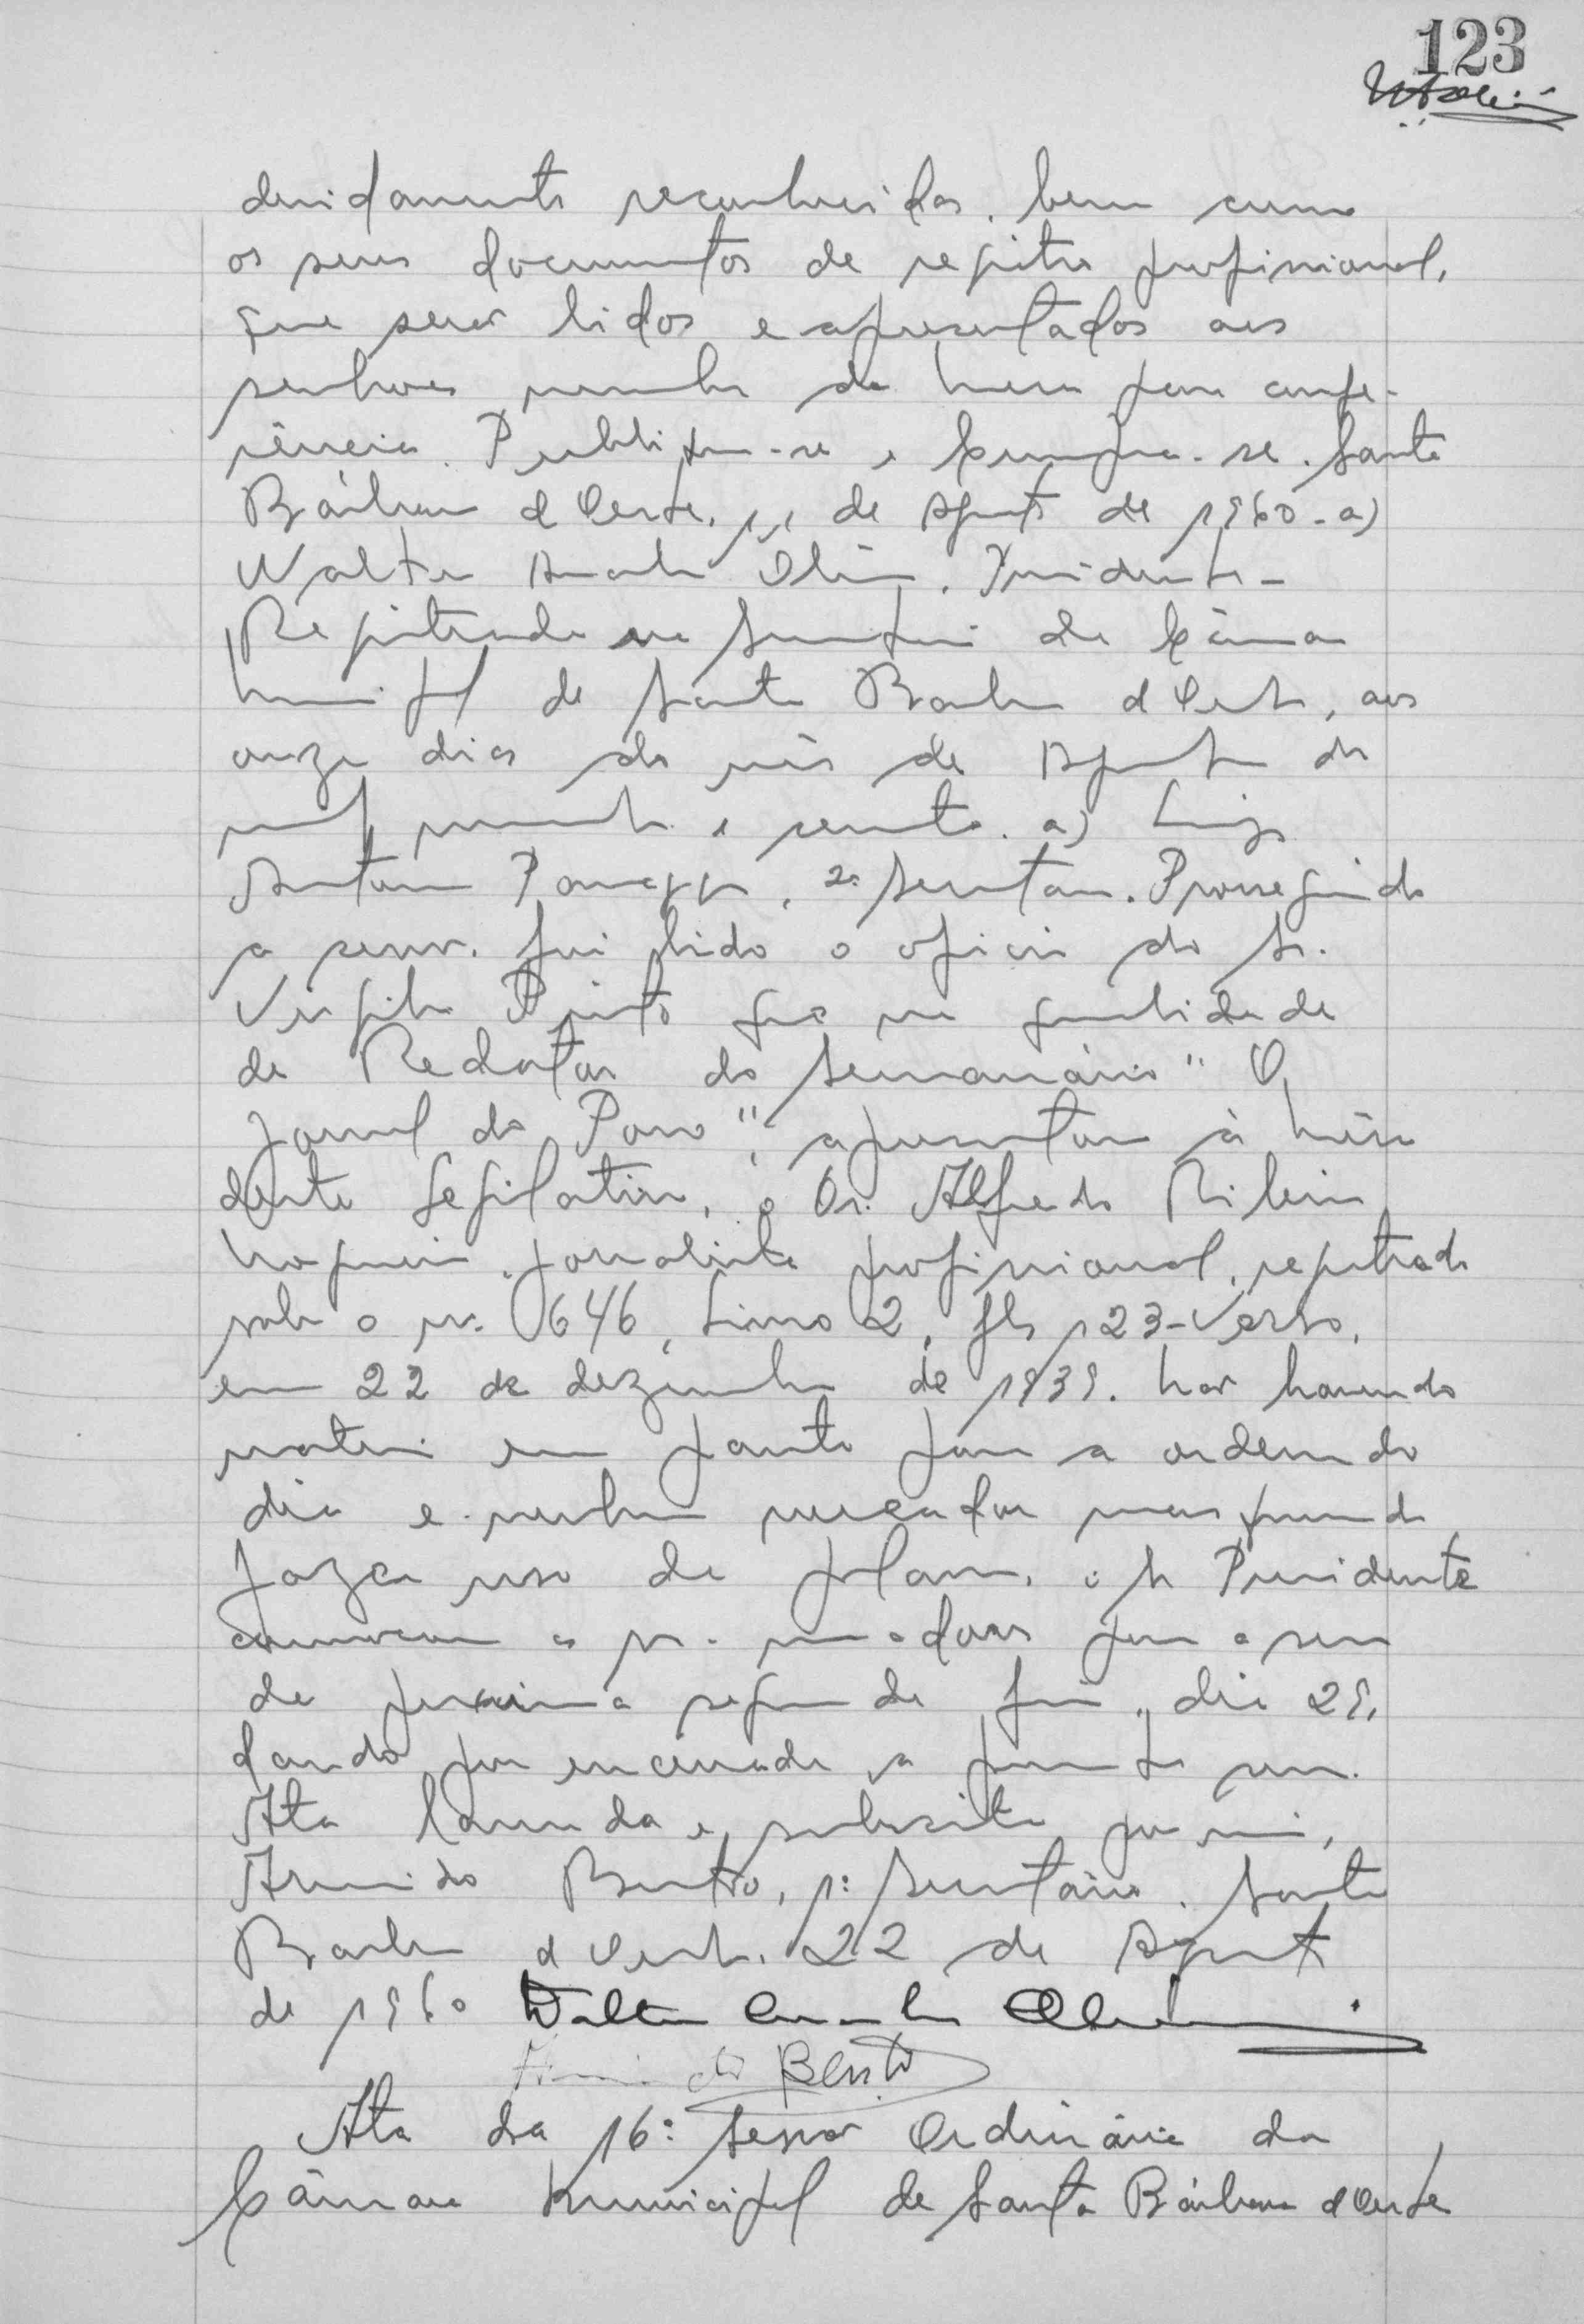 123
devidamente reconhecidas, bem como
os seus documentos de registro profissional,
que serão lidos e apresentados aos
senhores membros da mesa para confe-
rência. Publique-se e Cumpra-se. Santa
Bárbara d'Oeste, 11 de Agosto de 1960 - a)
Walter Oliveira. Presidente -
Registrada na Secretaria da Câmara
Municipal de Santa Barbara d'Oeste, aos
onze dias do mês de Agosto de
mil novecentos e sessenta. a) Luiz
Antonio Panaggio, 2º Secretario. Prosseguindo
a sessão, foi lido o oficio do Sr.
Virgilio Pinto que na qualidade
de Redator do Semanário "O
Jornal do Povo", apresentar à
deste Legislativo, o Dr. Alfredo Ribeiro
Nogueira, jornalista profissional, registrado
sob o nº 646, Livro 2, fls 123-Verso,
em 22 de dezembro de 1939. Não havendo
materia em pauta para a ordem do
dia e nenhum vereador mais querendo
fazer uso da palavra, o Sr Presidente
convocou os srs. vereadores para a sessão
da proxima segunda feira, dia 29,
dando por encerrada a presente sessão.
Ata lavrada e subscrita por mim,
Armindo Bento, 1º Secretário. Santa
Barbara d'Oeste, 22 de Agosto
de 1960 Walter Oliveira
Armindo Bento
Ata da 16ª Sessão Ordinária da
Câmara Municipal de Santa Bárbara d'Oeste